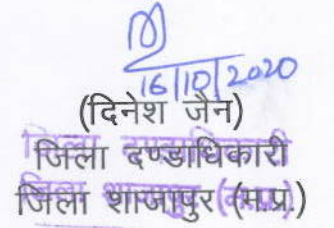 16/10/2020
(दिनेश जैन)
जिला दण्डाधिकारी
जिला शाजापुर (म.प्र.)